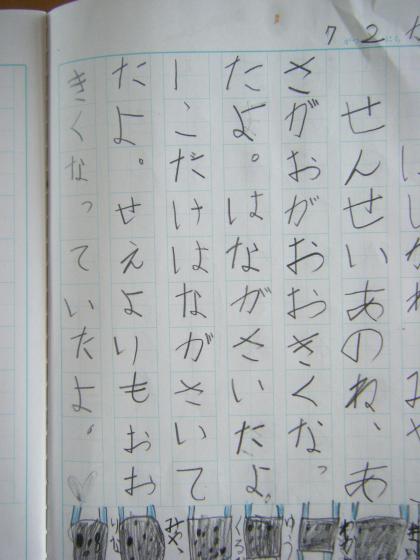 7 2
せんせいあのね、あ
さがおがおおきくなっ
たよ。はながさいたよ。
1こだけはながさいて
たよ。せえよりもおお
きくなっていたよ。♡